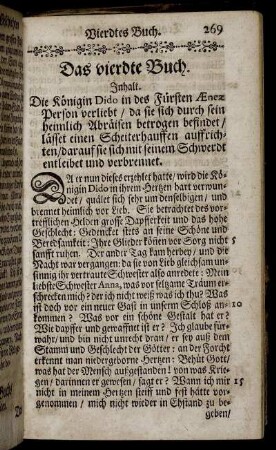 Vierdtes Buch. 269
Das vierdte Buch.
Inhalt.
Die Königin Dido in des Fürsten Æneæ
Person verliebt / da sie sich durch sein
heimlich Abräisen betrogen befindet /
lässet einen Scheiterhauffen auffrich-
ten / darauf sie sich mit seinem Schwerdt
entleibet und verbrennet.
DA er nun dieses erzehlet hatte / wird die Kö-
nigin Dido in ihrem Hertzen hart verwun-
det / quälet sich sehr um denselbigen / und
brennet heimlich vor Lieb. Sie betrachtet des vor-
trefflichen Helden grosse Dapfferkeit und das hohe
Geschlecht: Gedencket stets an seine Schöne und
Beredsamkeit: Ihre Glieder können vor Sorg nicht 5
sanfft ruhen. Der ander Tag kam herbey / und die
Nacht war vergangen: da sie von Lieb gleichsam un-
sinnig ihr vertraute Schwester also anredete: Mein
liebste Schwester Anna, was vor seltzame Träum er-
schrecken mich? der ich nicht weiß was ich thu? Was
ist doch vor ein neuer Gast in unserm Schloß an- 10
kommen? Was vor ein schöne Gestalt hat er?
Wie dapffer und gewaffnet ist er? Ich glaube für-
wahr / und bin nicht unrecht dran / er sey auß dem
Stamm und Geschlecht der Götter: an der Forcht
erkennt man niedergeborne Hertzen: Behüt Gott /
was hat der Mensch außgestanden! von was Krie-
gen / darinnen er gewesen / sagt er? Wann ich mir 15
nicht in meinem Hertzen steiff und fest hätte vor-
genommen / mich nicht wieder in Ehstand zu be-
geben /